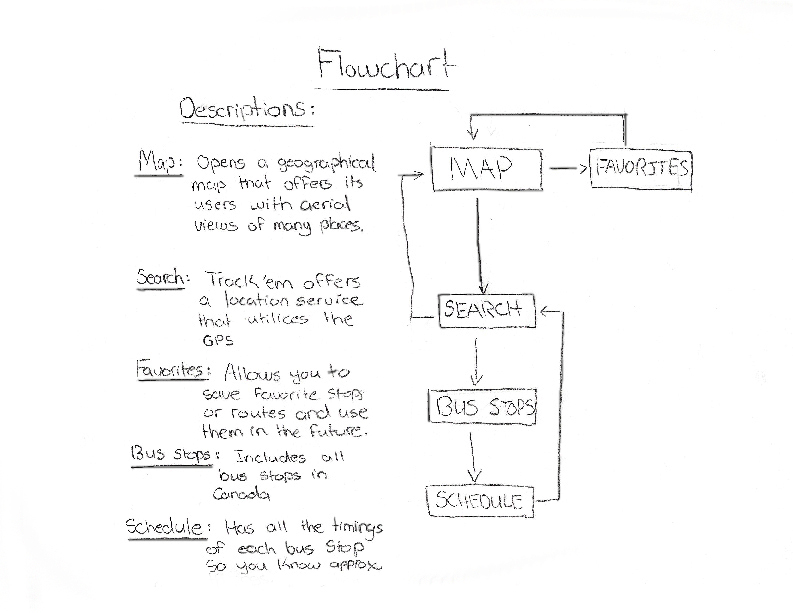 Flowchart
Descriptions:
Map: Opens a geographical
map that offers its
users with aerial
views of many places.
Search: Track'em offers
a location service
that utilices the
GPS
Favorites: Allows you to
save favorite stops
or routes and use
them in the future.
Bus Stops: Includes all
bus stops in
Canada
Schedule: Has all the timings
of each bus stop
so you know approx
MAP
FAVORITES
SEARCH
BUS STOPS
SCHEDULE